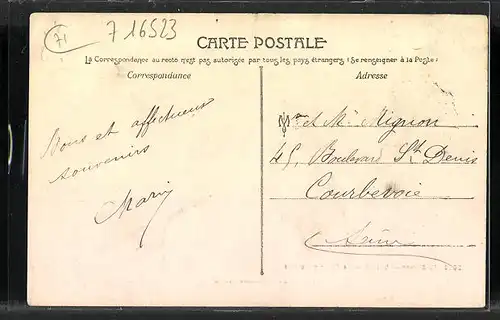 71
7 16523
CARTE POSTALE
La Correspondance au recto n'est pas autorisée par tous les pays étrangers (Se renseigner à la Poste)
Correspondance
Adresse
Bons et affectueux
souvenirs
Mary
Mr et Me Mignon
45, Boulevard St Denis
Courbevoie
Seine